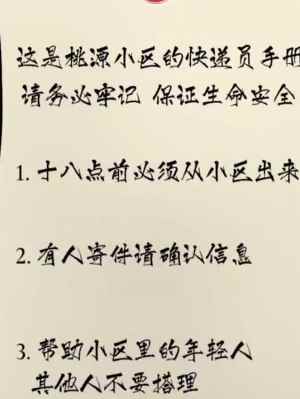 这是桃源小区的快递员手册
请务必牢记 保证生命安全
1. 十八点前必须从小区出来
2. 有人寄件请确认信息
3. 帮助小区里的年轻人
其他人不要搭理